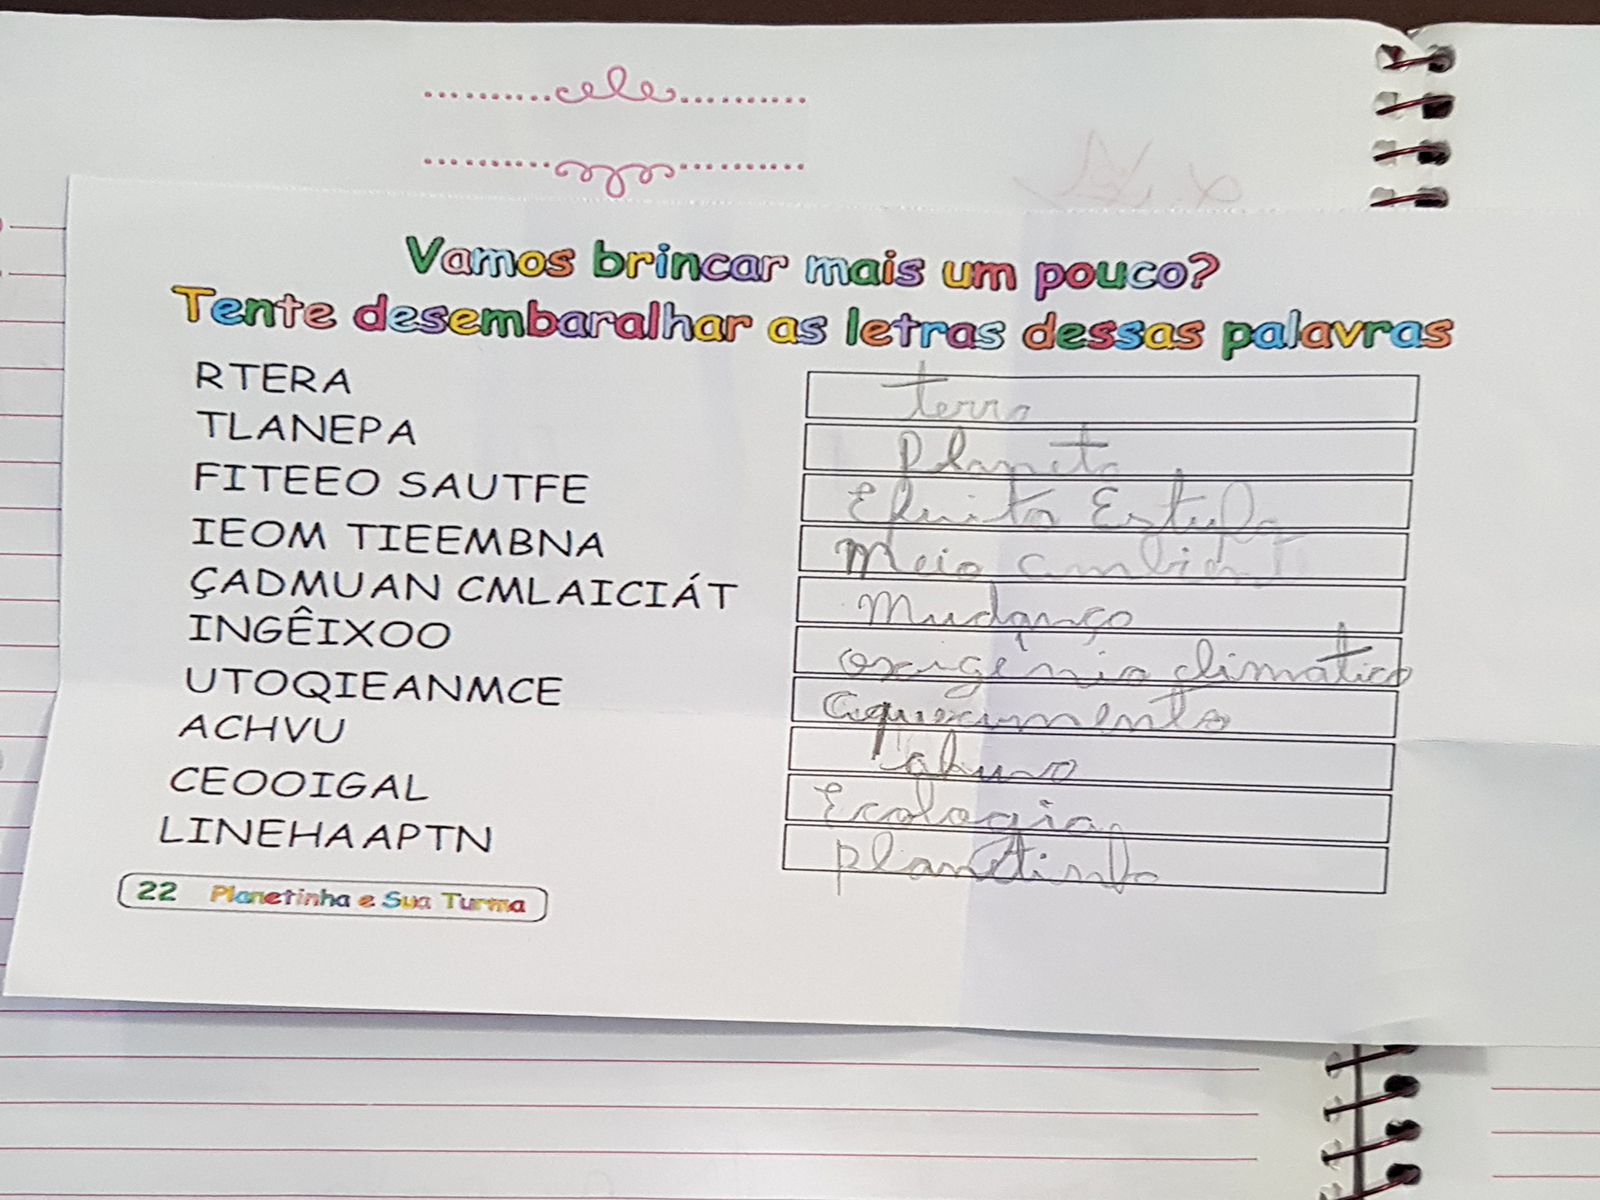 Vamos brincar mais um pouco?
Tente desembaralhar as letras dessas palavras
RTERA terra
TLANEPA planeta
FITEEO SAUTFE Efeito Estufa
IEOM TIEEMBNA Meio ambient
ÇADMUAN CMLAICIÁT Mudança
INGÊIXOO oxigênio climático
UTOQIEANMCE aquecimento
ACHVU
CEOOIGAL Ecologia
LINEHAAPTN planetinha
22 Planetinha e Sua Turma